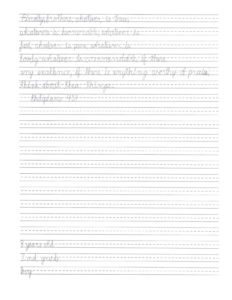 Finally, brothers, whatever is true,
whatever is honorable, whatever is
just, whatever is pure, whatever is
lovely, whatever is commendable, if there
any excellence, if there is anything worthy of praise,
think about these things.
Philippians 4:8
8 years old
2nd grade
boy